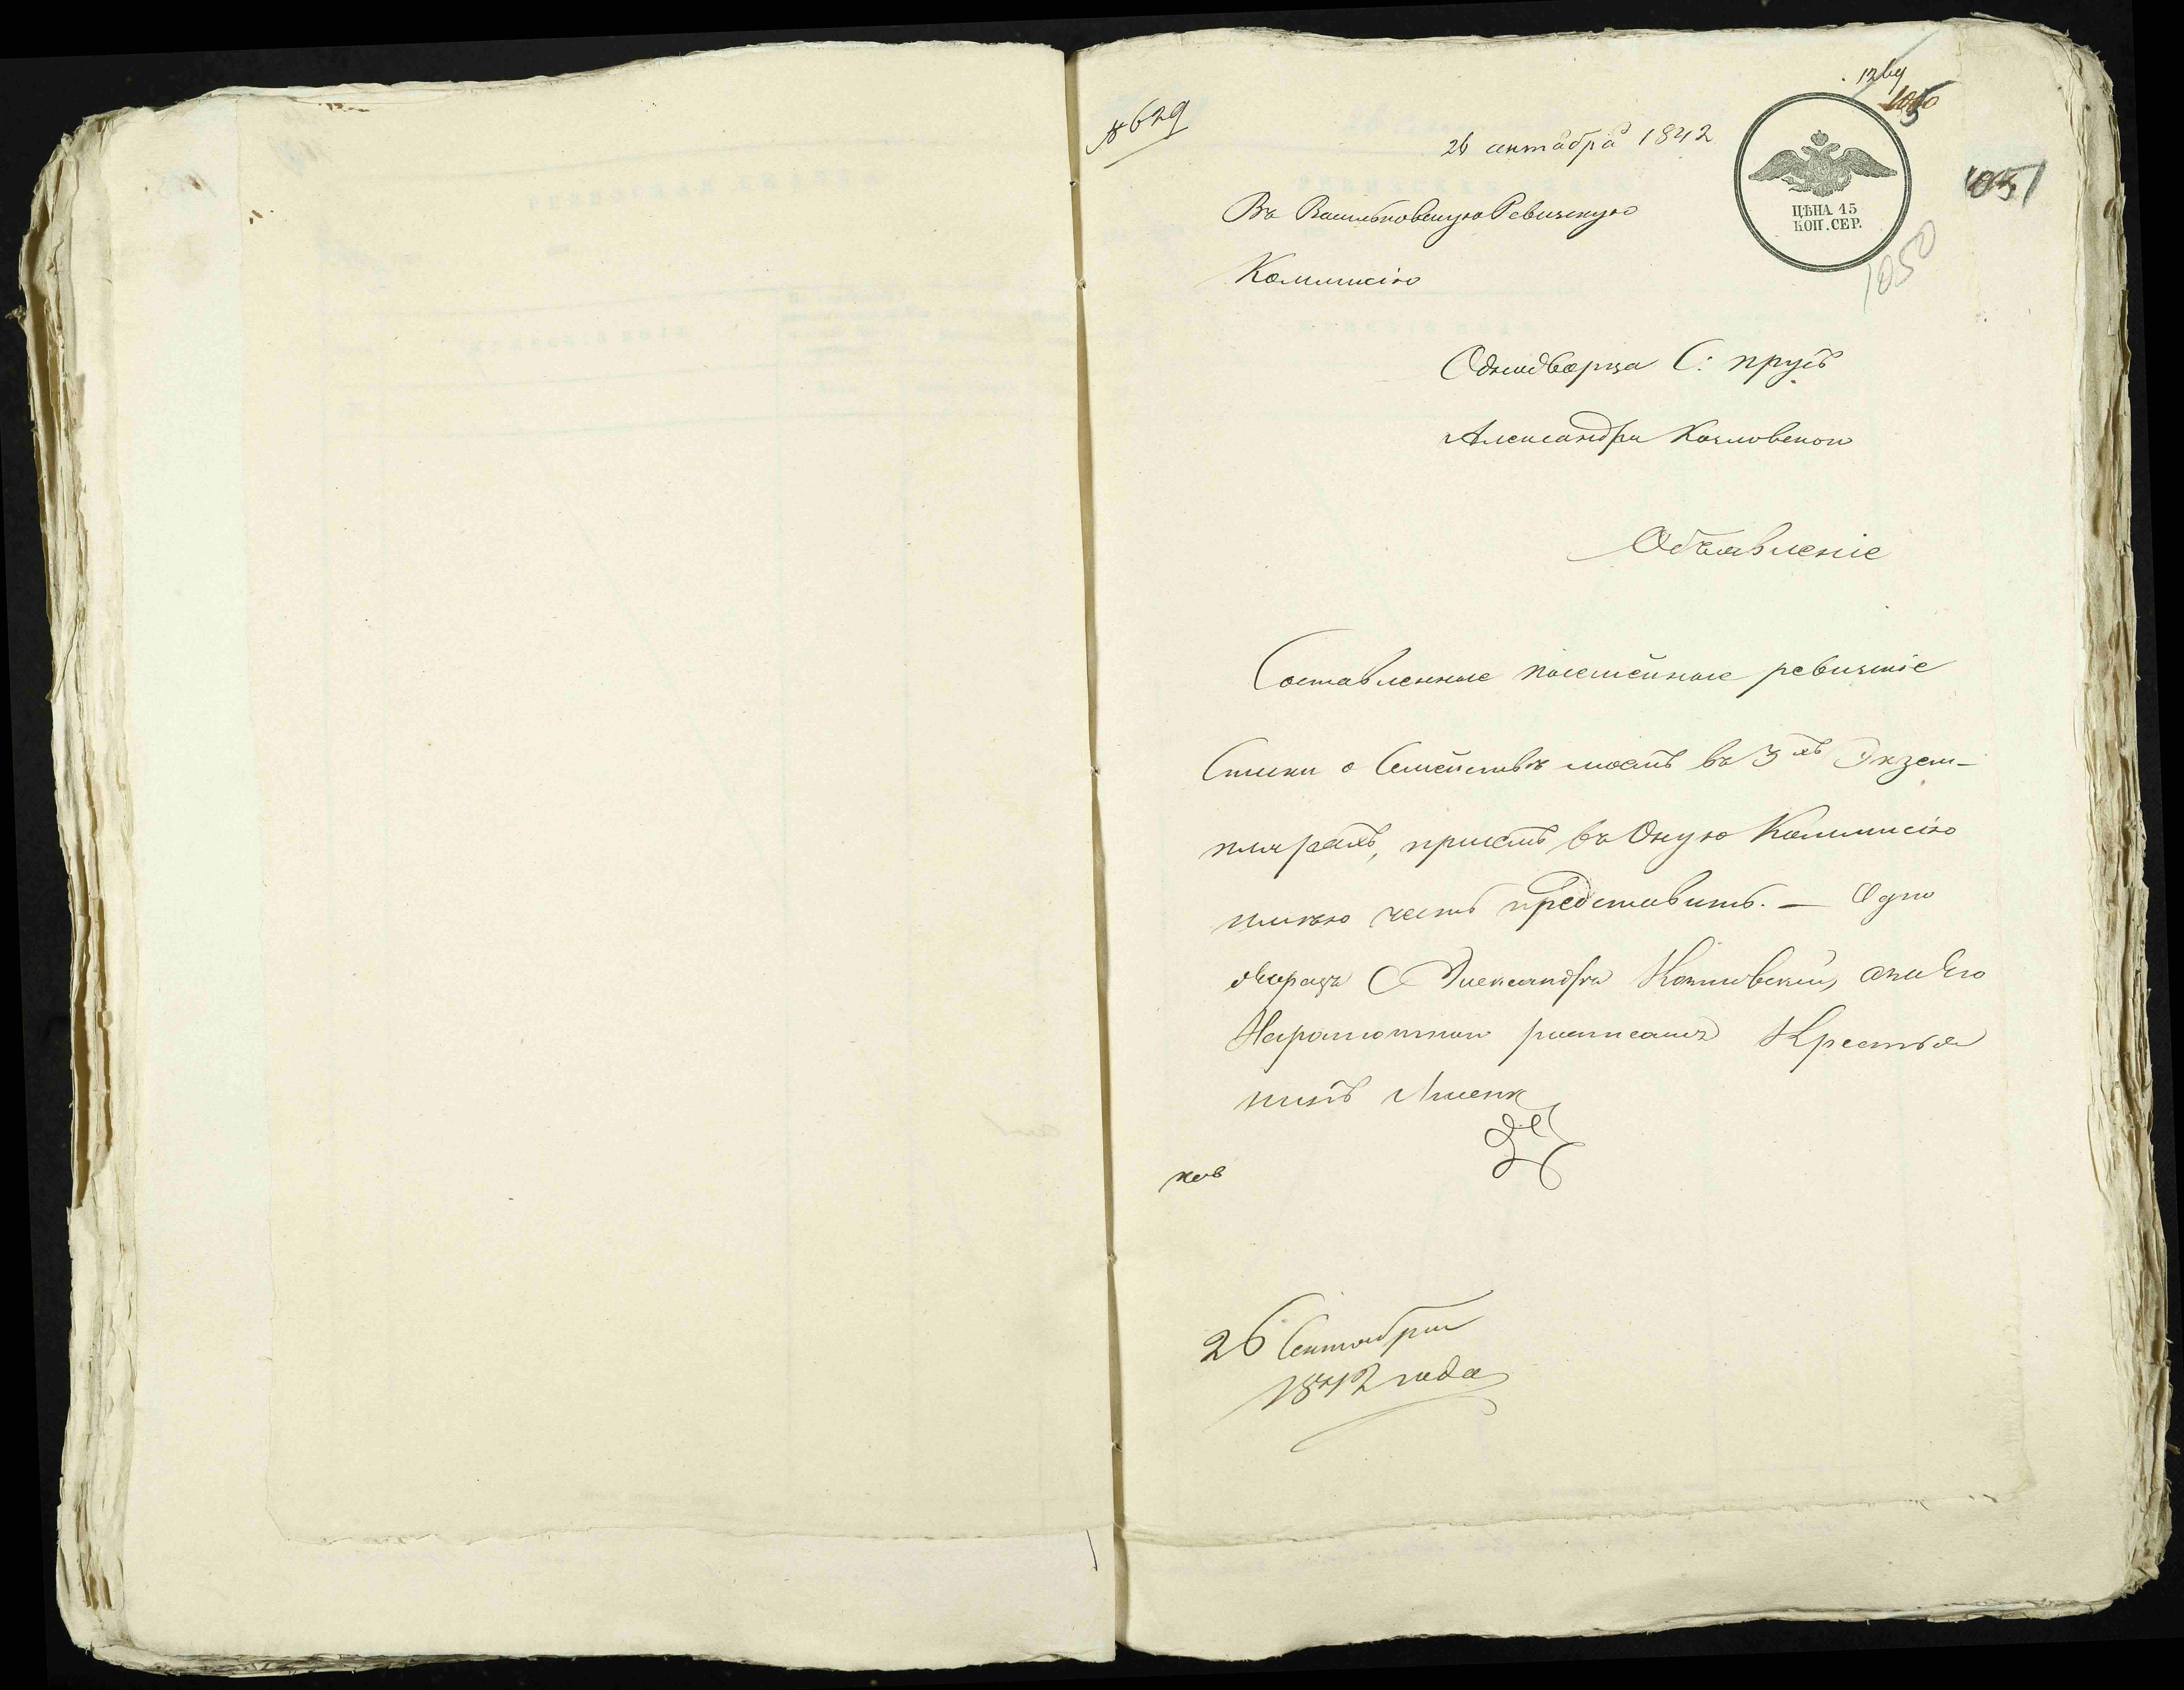 № 629
26 сентября 1842
1050
1051
ЦѢНА 15
КОП. СЕР.
1050
Въ Васильковскую Ревизскую
Коммисію
Однодворца С: Прусъ
Александра Козловскаго
Объявленіе
Составленные посемейные ревизскіе
Списки о Семействѣ моемъ въ 3хъ Экзем-
плярахъ, присемъ въ Оную Коммисію
имѣю честь представить. — Одно
дворецъ Александръ Козловскій, а за Его
Неграмотнаго росписался Крестья
нинъ
26 Сентября
1842 года